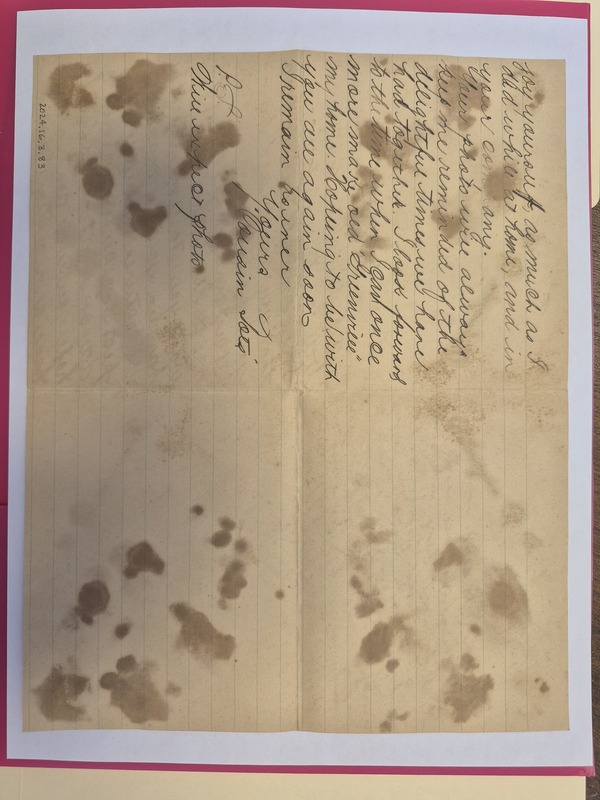 joy yourself, as much as I
did while at home, and in
your company.
Your photo will always
keep me reminded of the
delightful times we have
had together. I look forward
to the time when I can once
more make old Greenville
my home. Hoping to be with
you all again soon
I remain
Yours
Cousin
P.S.
photo
2024.16.3.83